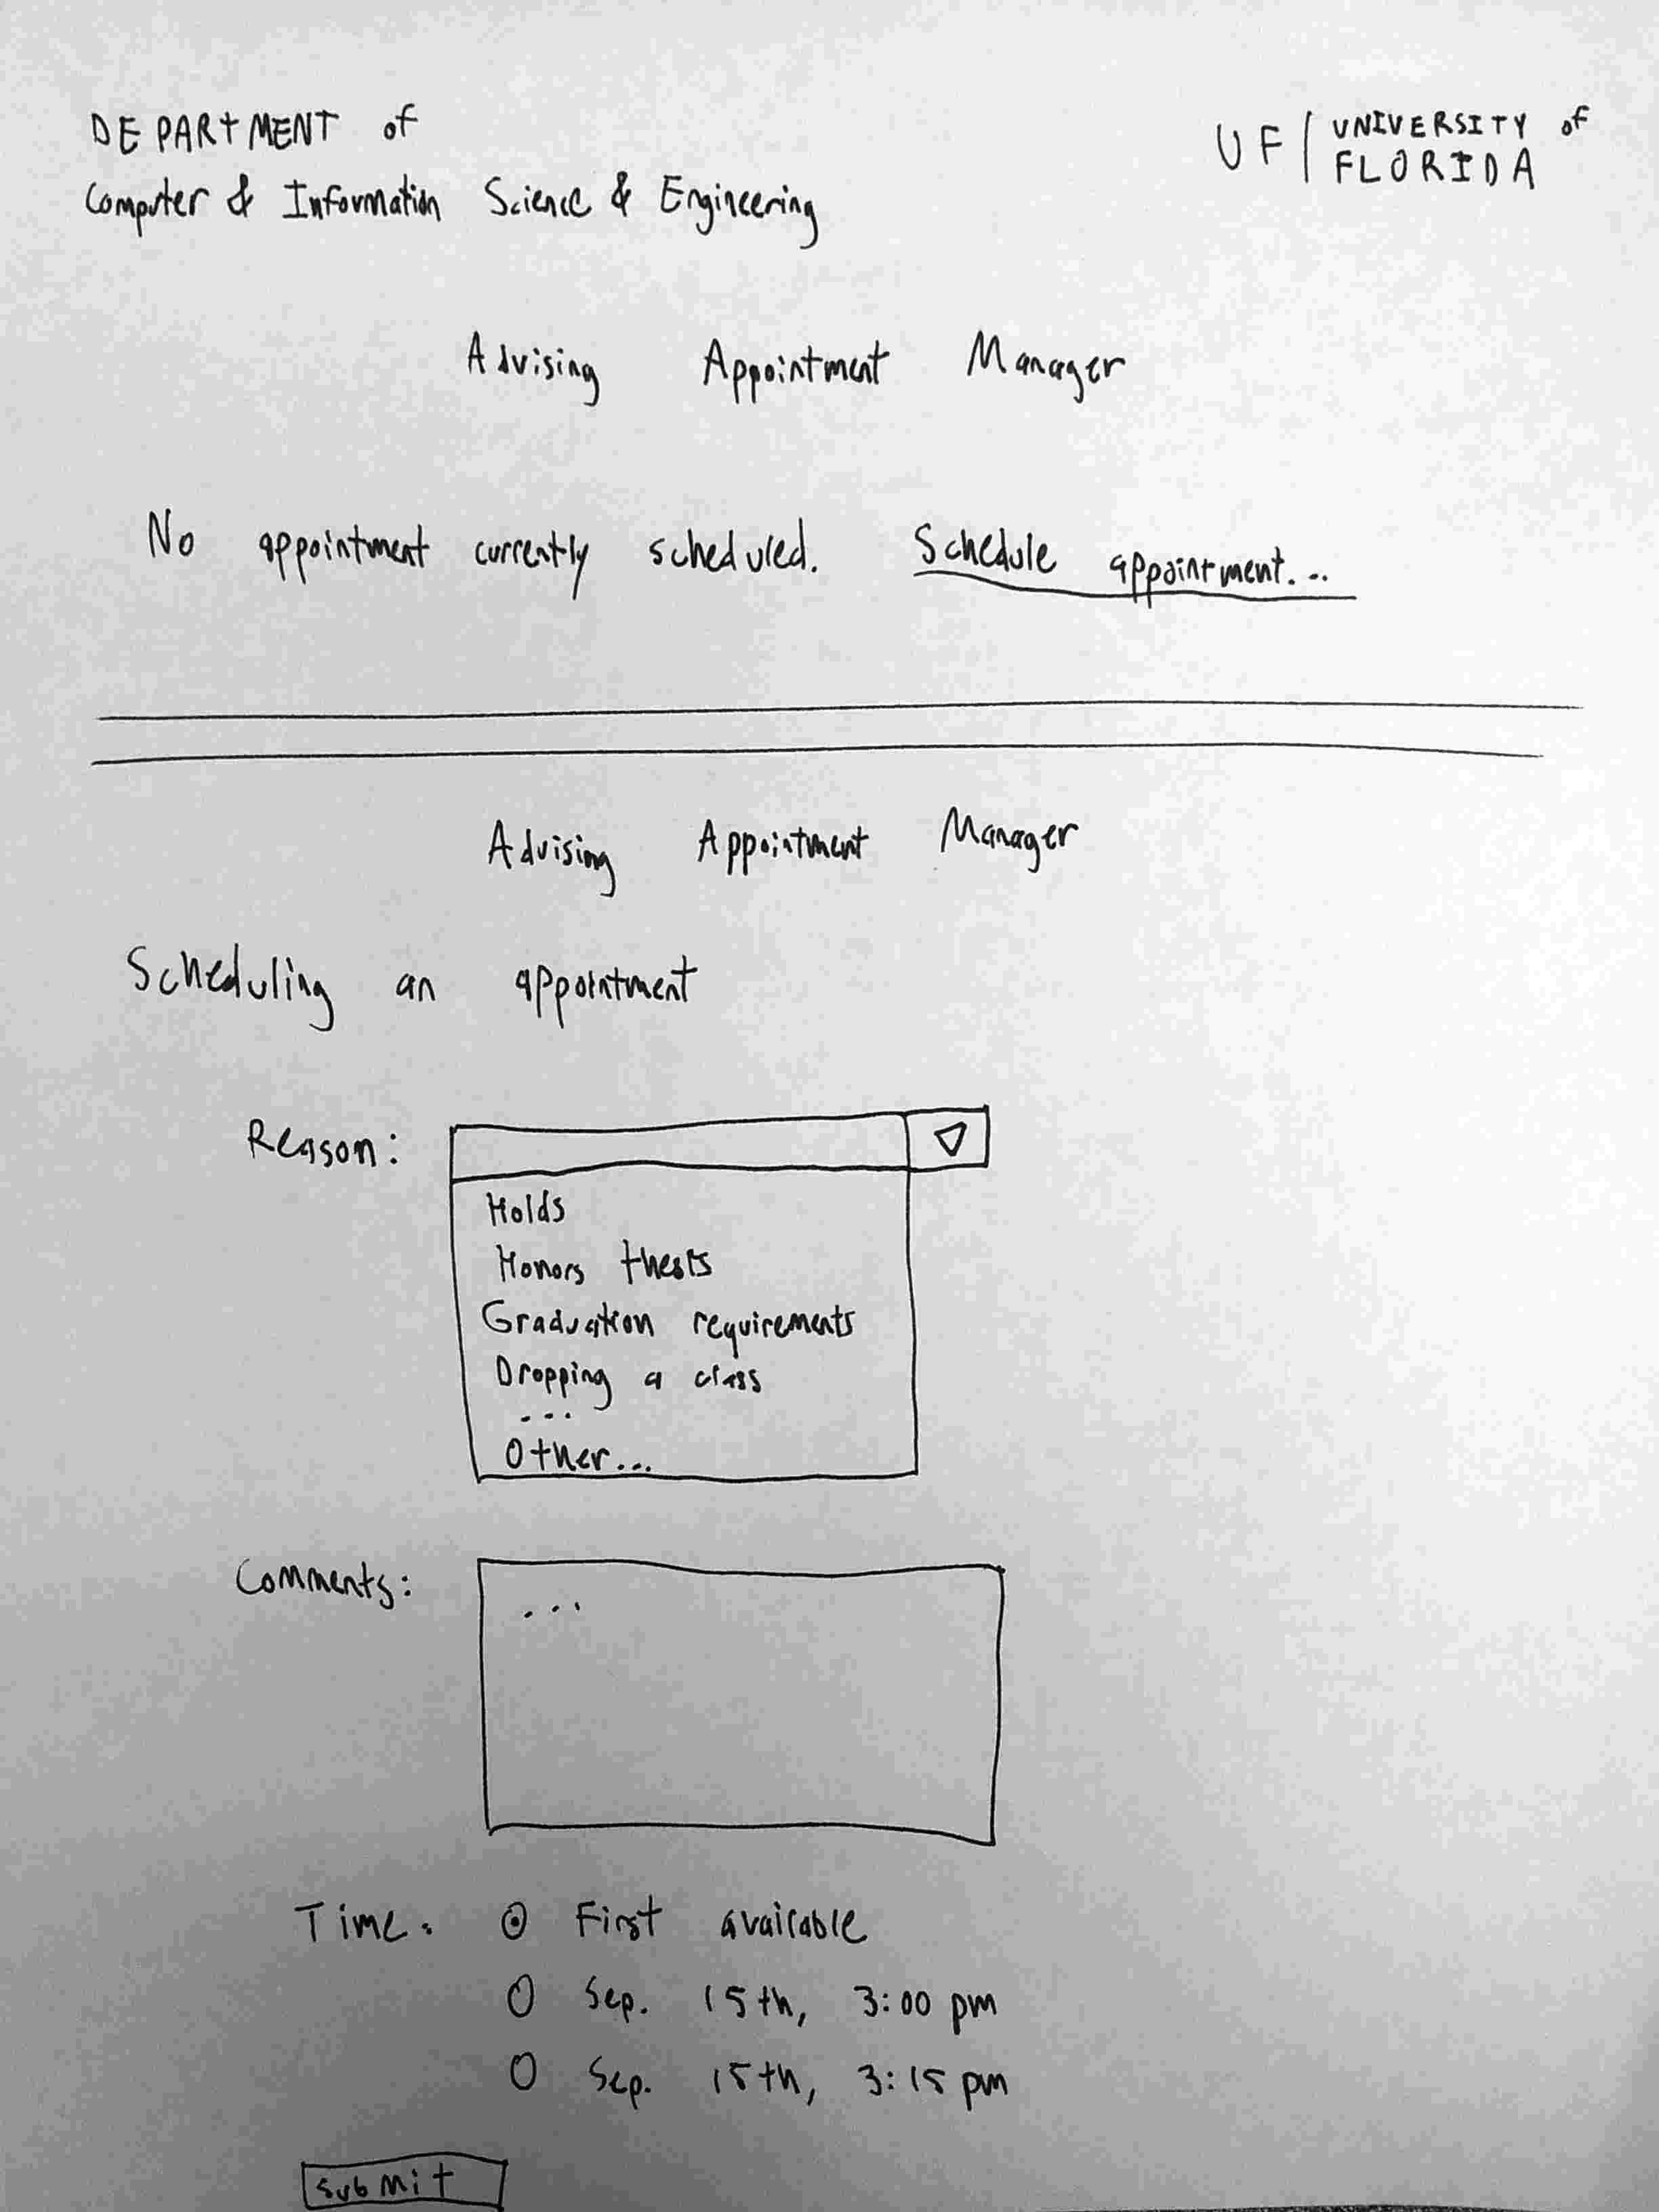 DEPARTMENT of
Computer & Information Science & Engineering
UF | UNIVERSITY of
FLORIDA
Advising Appointment Manager
No appointment currently scheduled. Schedule appointment...
Advising Appointment Manager
Scheduling an appointment
Reason:
Holds
Honors thesis
Graduation requirements
Dropping a class
...
Other...
Comments:
...
Time: First available
Sep. 15th, 3:00 pm
Sep. 15th, 3:15 pm
Submit